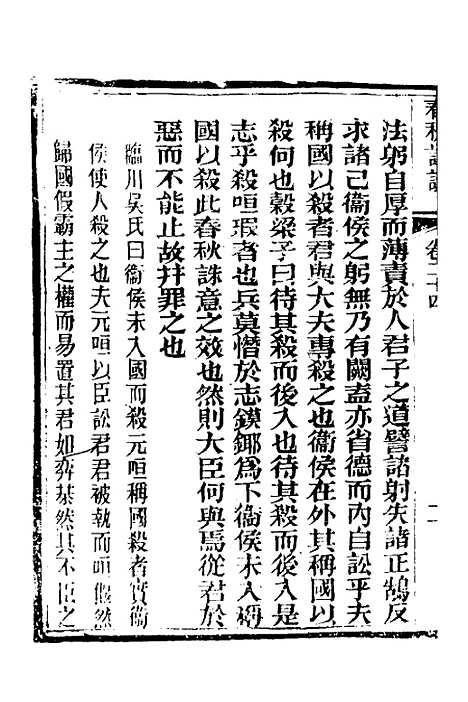 春秋
卷三十四
法躬自厚而薄責於人君子之道譬諸射失諸正鵠反
求諸己衞侯之躬無乃有闕盍亦省德而內自訟乎夫
稱國以殺者君與大夫專殺之也衞侯在外其稱國以
殺何也穀梁子曰待其殺而後入也待其殺而後入是
志乎殺咺瑕者也兵莫憯於志鏌鎁爲下衞侯未入稱
國以殺此春秋誅意之效也然則大臣何與焉從君於
惡而不能止故幷罪之也
臨川吳氏曰衞侯未入國而殺元咺稱國殺者實衞
侯使人殺之也夫元咺以臣訟君君被執而咺偃然
歸國假霸主之權而易置其君如弈棊然其不臣之